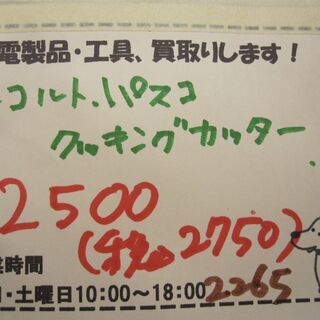 電製品・工具、買取りします！
コルト.パスコ
クッキングカッター
2500
(税込2750)
業時間
日・土曜日10:00～18:00
2265